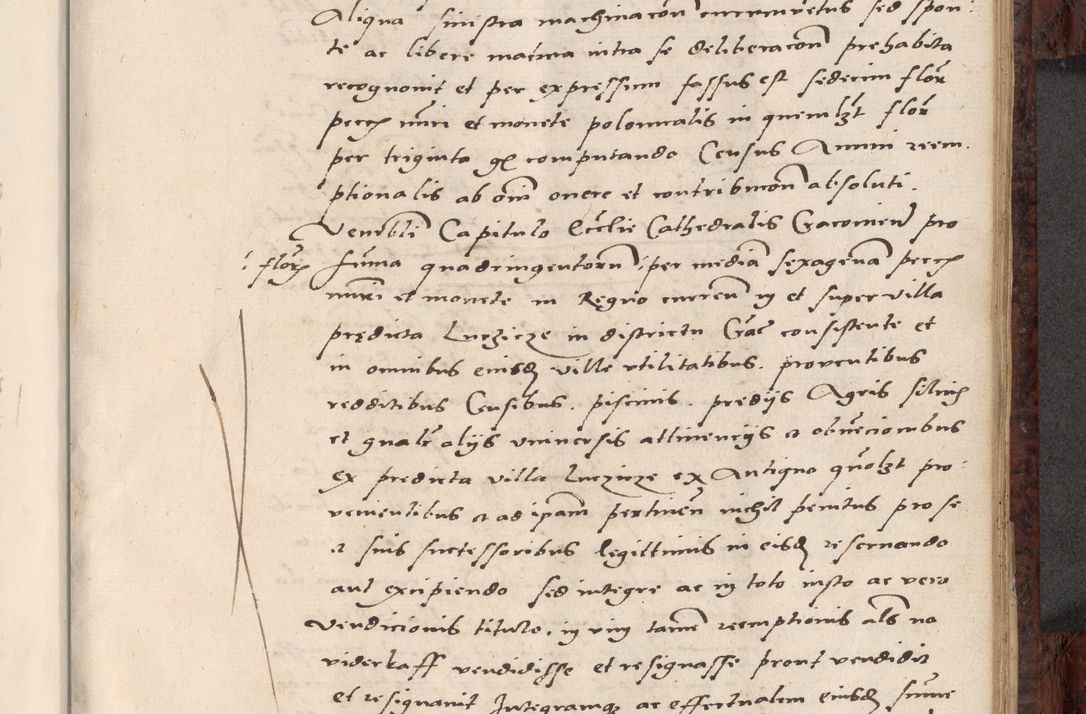 Aliqua sinistra machinacõn circumvetus sed spon:
te ac libere matura intra se deliberacõn prehabita
recognovit et per expressum fassus est sedecim florẽ
pecc nũri et monete polonicalis in quemlibet florẽ
per triginta gr computando Census Annui reem:
ptionalis ab oni onere et contribucõn absoluti.
Venerbli Capitulo Ecclie Cathedralis Cracovien pro
florẽ sũma quadringentorũ per mediã sexagenã pecc
nũri et monete in Regno curren in et super villa
prędicta Luczicze in districtu Crac consistente et
in omnibus eiusd ville utilitatibus. proventibus
redditibus Censibus. piscinis. prediis Agris silvis
et gnalr aliis universis attinenciis et obvencionibus
ex predicta villa Luczicze ex Antiquo quolibet pro:
venientibus et ad ipam pertinen nichil penitus pro se
et suis successoribus legittimis in eisd reservando
aut excipiendo sed integre ac in toto iusto ac vero
vendicionis titulo. in vim tamen reemptionis als na
viderkaff vendidisse et resignasse prout vendidit
et resignavit Integramque ac effectualem eiusd sume